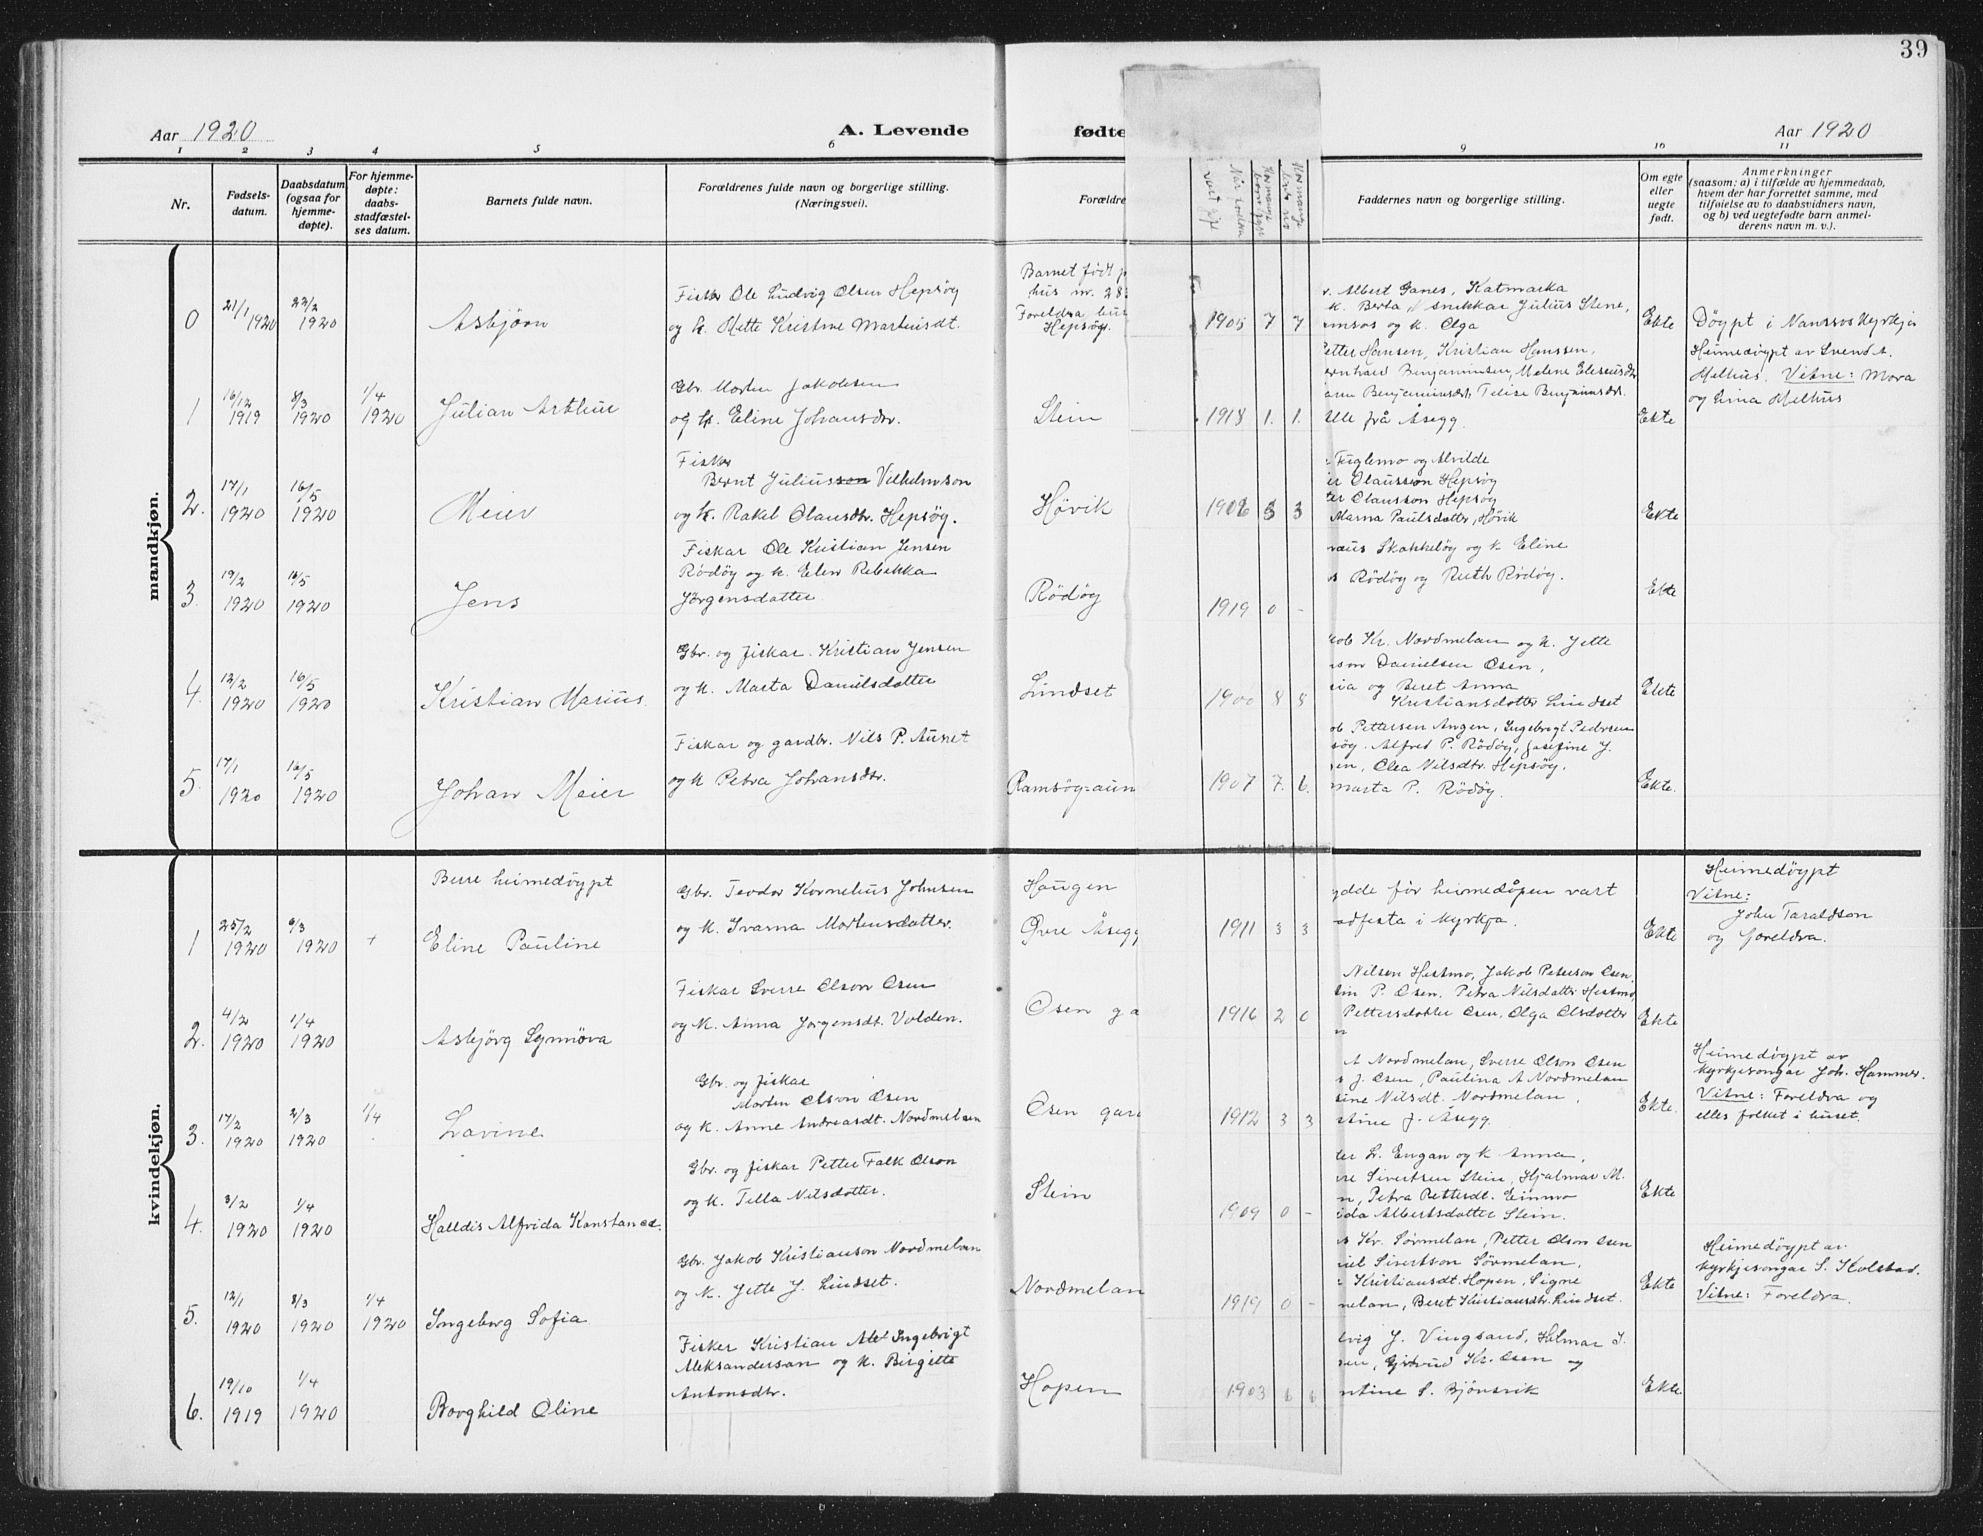 39
Aar 1920
A. Levende
fødte
Aar 1920
1 2 3 4 5 6 9 10 11
Nr.
Fødsels-
datum.
Daabsdatum
(ogsaa for
hjemme-
døpte).
For hjemme-
døpte:
daabs-
stadfæstel-
ses datum.
Barnets fulde navn.
Forældrenes fulde navn og borgerlige stilling.
(Næringsvei).
Forældre
Faddernes navn og borgerlige stilling.
Om egte
eller
uegte
født.
Anmerkninger
(saasom: a) i tilfælde av hjemmedaab,
hvem der har forrettet samme, med
tilføielse av to daabsvidners navn,
og b) ved uegtefødte barn anmel-
derens navn m. v.).
mandkjøn.
0
21/1 1920
22/2 1920
Asbjørn
Fisker Ole Ludvig Olsen Hepsøy
og k. Mette Kristine Marhusdt.
Barnet født p
hus nr. 28
Foreldra bus
Hepsøy.
1905 7 7
Albert Ganes, Katmarka
k. Berta / snekkar Julius Stene,
amsos og k. Olga
Ekte
Døypt i Namsos Kyrkje
1
16/12 1919
8/3 1920
1/4 1920
Julian Arthur
Gbr. Morten Jakobsen
og k. Eline Johansdr.
Stein
1918 1. 1.
Petter Hansen, Kristian Hanssen,
ernhard Benjaminsen, Melene Eleseusdr
Benjaminsdtr, Telise Benjaminsdt.
lle frå Åsegg.
Ekte
Heimedøypt av Svend A.
Melhus. Vitne: Mora
og Lina Melhus
2.
17/1 1920
16/5 1920
Meier
Fisker
Bernt Juliusson Vilhelmson
og k. Rakel Olausdtr. Hepsøy.
Høvik
1908 3 3
Fuglemo og Alvilde
er Olausson Hepsøy
ter Olausson Hepsøy
Marna Paulsdatter, Høvik
Ekte
3.
19/2 1920
16/5 1920
Jens
Fiskar Ole Kristian Jensen
Rødøy og k. Elen Rebekka
Jørgensdatter
Rødøy
1919 0 -
Skakkeløy og k Eline
s Rødøy og Ruth Rødøy.
Ekte
4.
12/2 1920
16/5 1920
Kristian Marius.
Gbr. og fiskar Kristian Jensen
og k. Marta Danielsdatter
Lindset
1900 8 8
kob Kr. Nordmelan og k. Jette
rson Danielsen Osen,
sia og Beret Anna
Kristiansdatter Lindset
Ekte
5.
17/1 1920
16/5 1920
Johan Meier
Fiskar og gardbr. Nils P. Aunet
og k Petra Johansdtr.
Ramsøy-aun
1907 7. 6.
ob Pettersen Angen, Ingebrigt Pedersen
søy. Alfred P. Rødøy, Josefine J.
en, Olea Nilsdtr. Hepsøy.
marta P. Rødøy.
Ekte.
kvindekjøn.
1
25/2 1920
9/3 1920
+
Berre heimedøypt
Eline Pauline
Gbr. Teodor Kornelius Johnsen
og k. Ivarna Mortensdatter.
Haugen
Øvre Åsegg
1911 3 3
ydde før heimedåpen vart
adfesta i kyrkja.
Ekte
Heimedøypt
Vitne:
John Taraldson
og foreldra.
2.
4/2 1920
1/4 1920
Asbjørg Synnøva
Fiskar Sverre Olson Osen
og k. Anna Jørgensdt. Volden.
Osen ga
1916 2 0
Nilsen Hestmo, Jakob Peterson Osen,
tin P. Osen. Petra Nilsdatter Hestmo
Pettersdatter Osen, Olga Olsdatter
n
Ekte
3.
17/2 1920
2/3 1920
1/4
Lavine
Gbr. og fiskar
Morten Olson Osen
og k. Anne Andreasdt. Nordmelan
Osen gar
1912 3 3
A Nordmelan, Sverre Olson Osen
s J. Osen, Paulina A Nordmelan
sine Nilsdt. Nordmelan,
stine J. Åsegg.
Ekte.
Heimedøypt av
kyrkjesongar Joh. Hammer.
Vitne: Foreldra og
elles folket i huset.
4.
3/2 1920
1/4 1920
Halldis Alfrida Konstance.
Gbr. og fiskar Petter Falk Olson
og k. Tella Nilsdatter.
Stein
1909 0 -
ter L. Engan og k. Anna,
re Sivertsen Stein, Hjalmar M.
n, Petra Petterdt. Einmo
ida Albertsdatter Stein.
Ekte
5.
12/1 1920
8/3 1920
1/4 1920
Ingeborg Sofia
Gbr. Jakob Kristianson Nordmelan
og k. Jette J. Lindset.
Nordmelan
1919 0 -
s Kr. Sørmelan, Petter Olson Osen
iel Sivertson Sørmelan,
Kristiansdt. Hopen, Signe
melan, Beret Kristiansdtr. Lindset.
Ekte
Heimedøypt av
kyrkjesongar S. Kolstad.
Vitne: Foreldra.
6.
19/10 1919
1/4 1920
Borghild Oline
Fisker Kristian Ingebrigt
Aleksandersan og k. Birgitte
Antonsdtr.
Hopen
1903 6 6
lvig J. Vingsand, Helmar I.
sen, Gjertrud Kr. Osen og
ntine S. Bjønsvik
Ekte